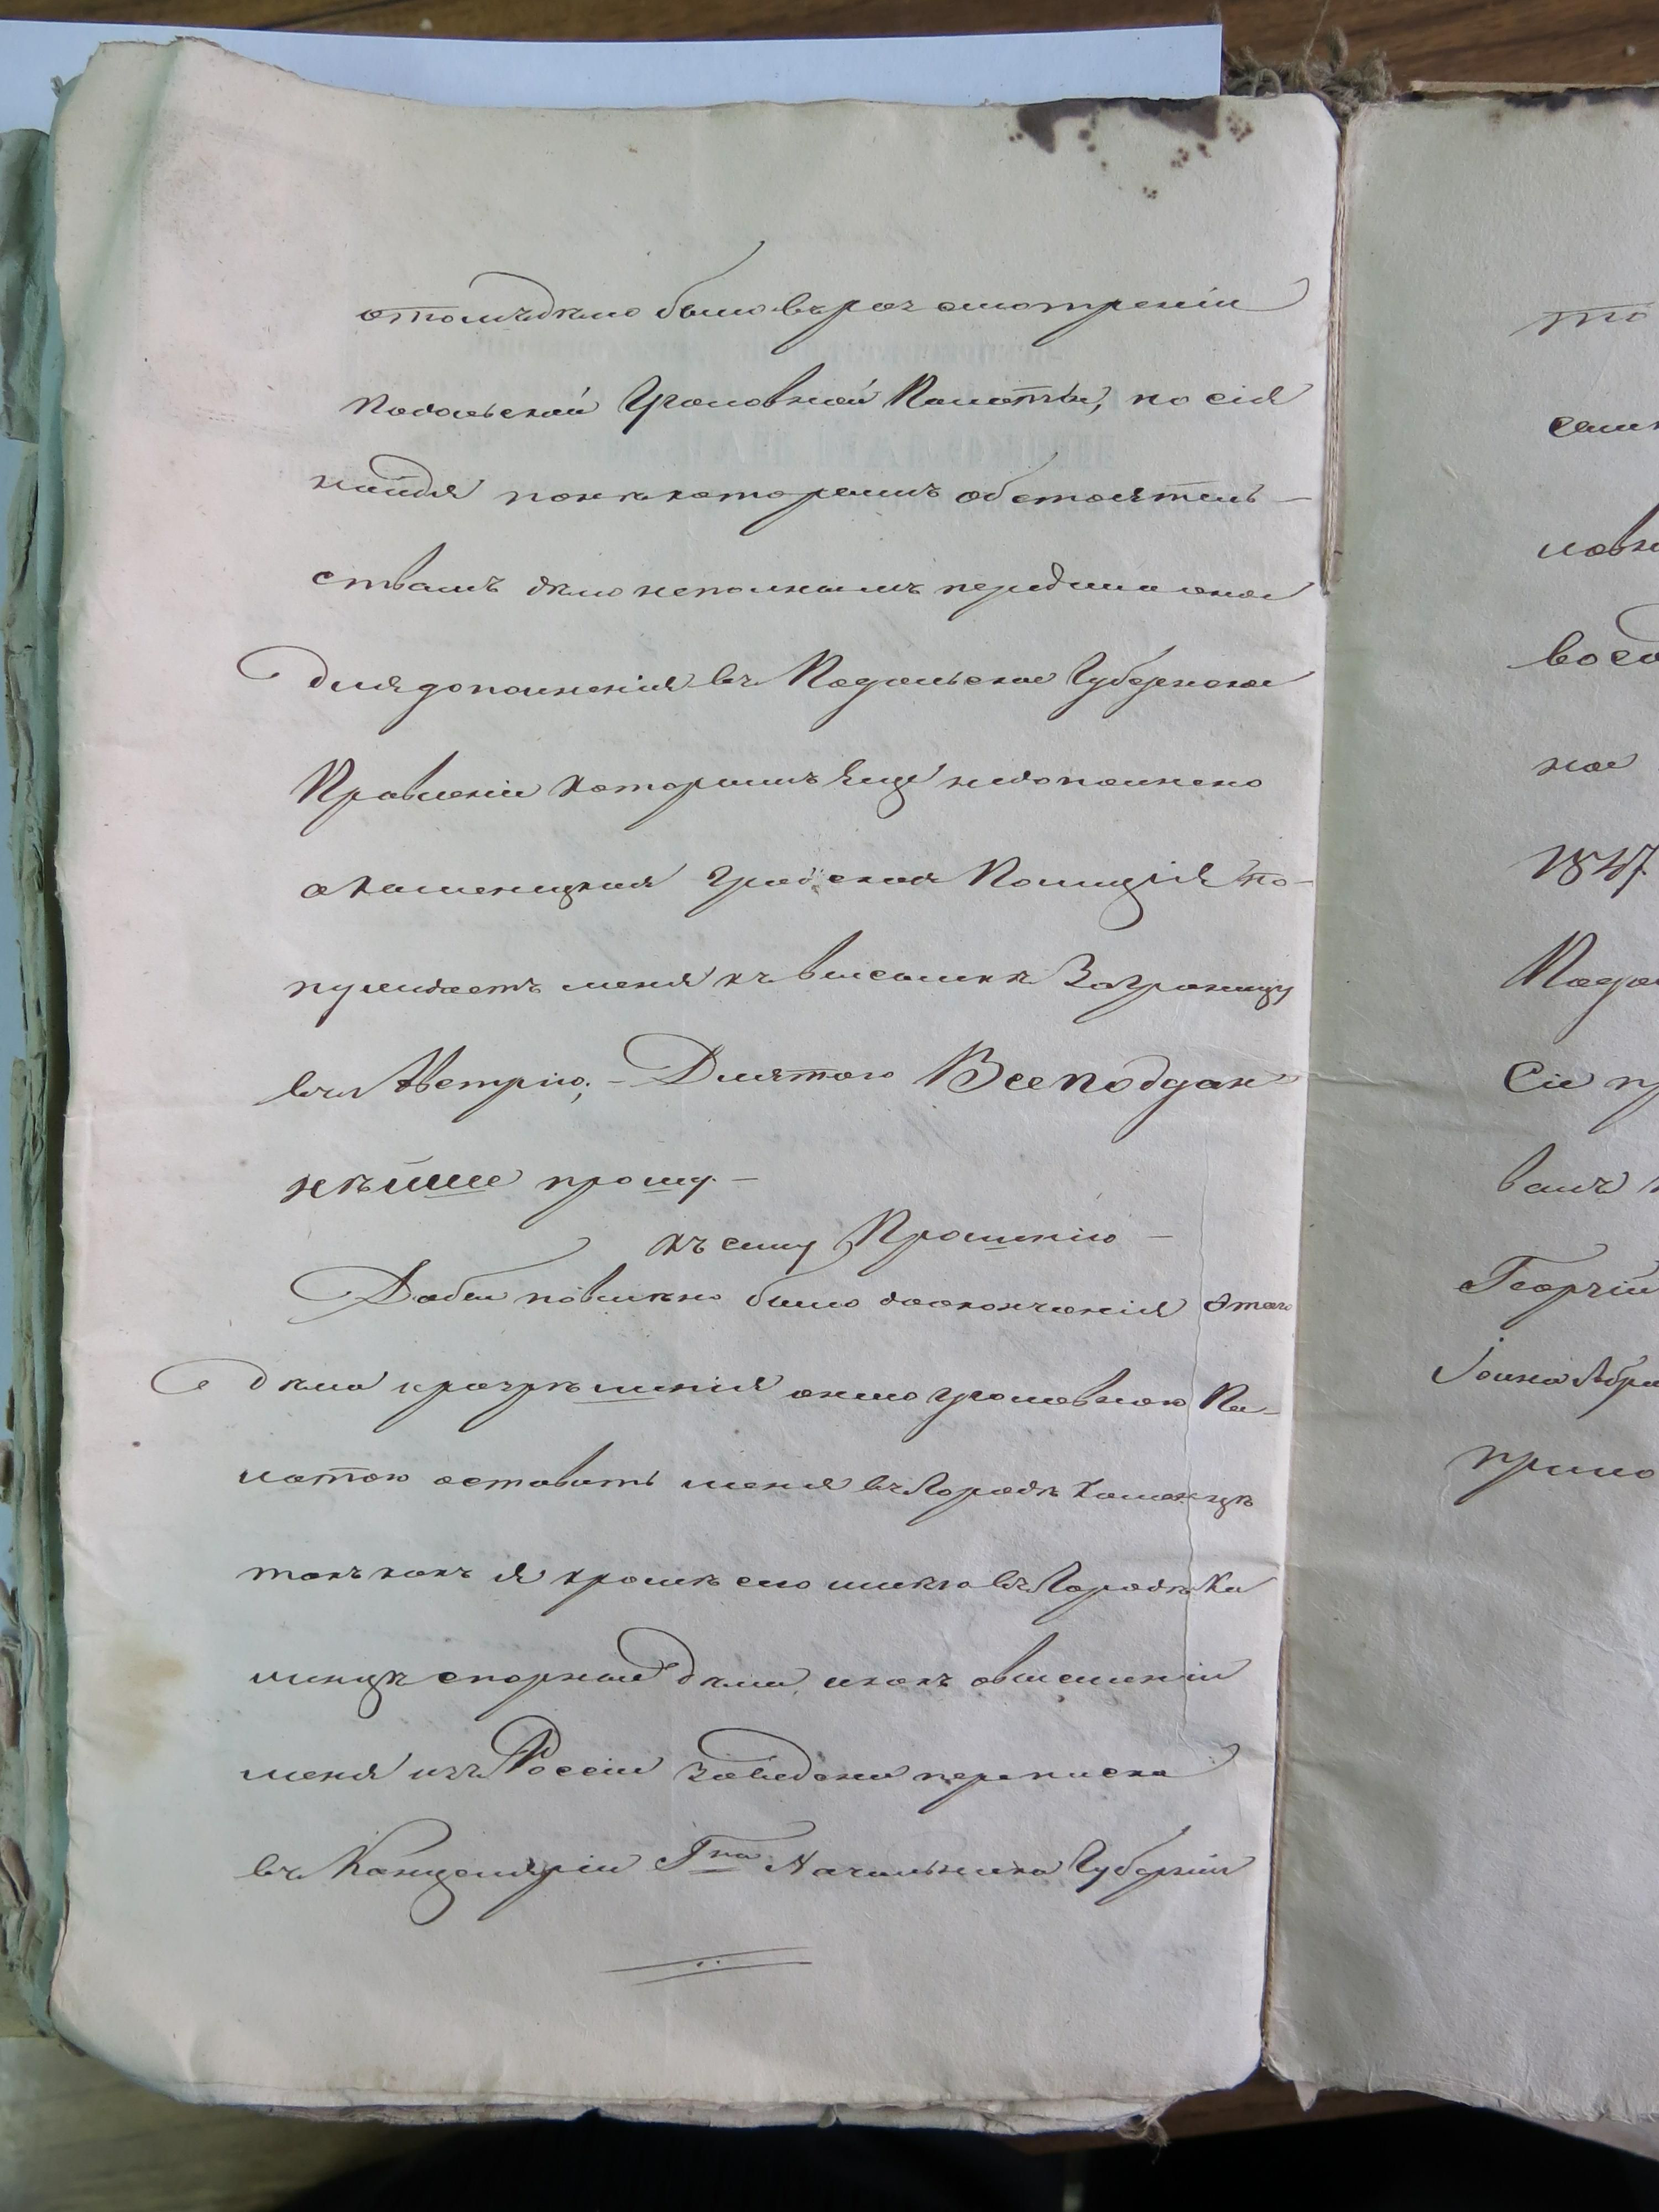 отомъ дѣло было въ розсмотреніи
Подольской Уголовной Палаты, но сія
найдя понѣкоторымъ обстоятель-
ствамъ дѣло неполнымъ передала оное
для дополненія въ Подольское Губернское
Правленіе которымъ Еще недополнено
а Каменецкая Градская Полиція по-
нуждаетъ меня къ высылкѣ Заграницу
въ Австрію; – Длятого Всеподдан
нѣйше прошу. –
къ сему Прошенію –
Дабы повелѣно было доокончанія этого
дѣла и разрѣшенія онаго уголовною Па-
латою оставить меня въ Городѣ Каменцѣ
такъ какъ я кромѣ сего имѣю въ Городѣ Ка
менцѣ спорные дѣла, и какъ овысылкѣ
меня изъ Россіи заведена переписка
въ Канцеляріи Гна Начальника Губерніи
то
саин
ловн
восо
ное
1847
Подол
Сіе пр
валъ
Георгій
Іоина Абра
прило